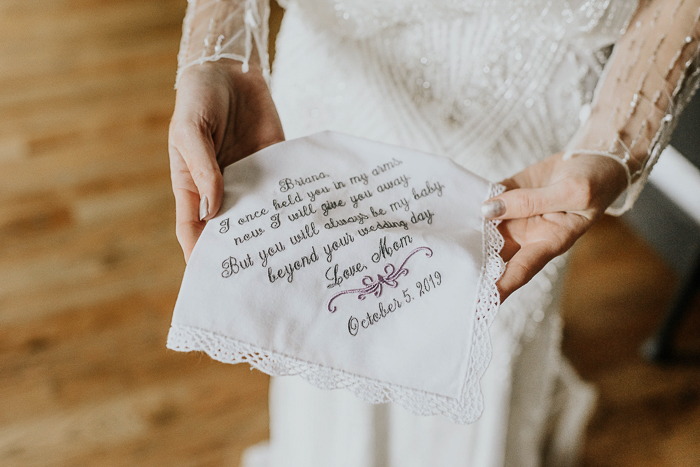 Briana,
I once held you in my arms
now I will give you away
But you will always be my baby
beyond your wedding day
Love, Mom
October 5, 2019